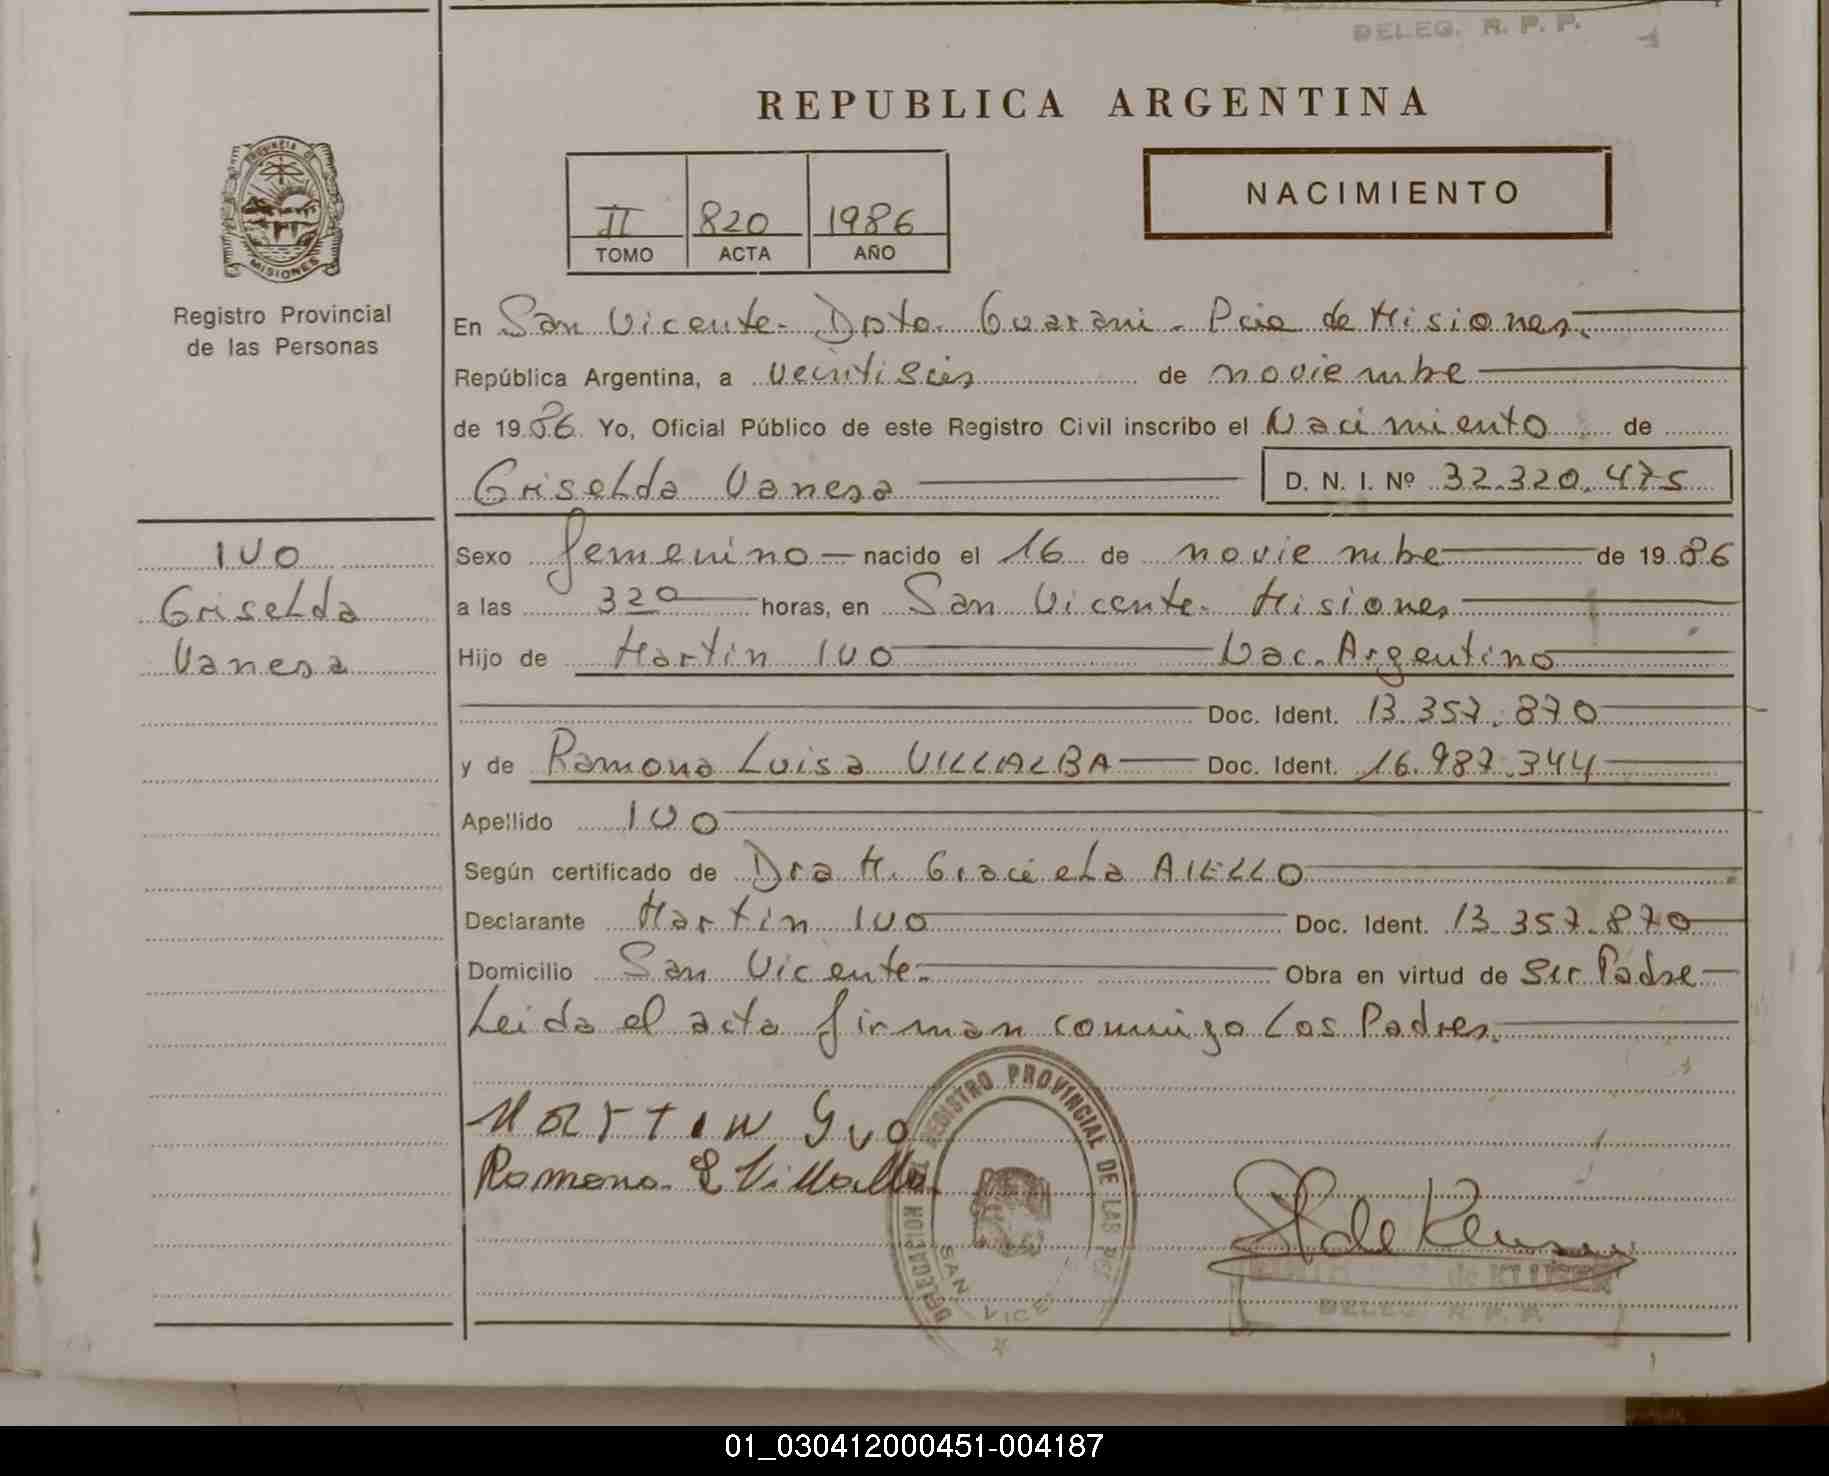 DELEG. R. P. P.
REPUBLICA ARGENTINA
PROVINCIA DE
MISIONES
Registro Provincial
de las Personas
II 820 1986
TOMO ACTA AÑO
NACIMIENTO
En San Vicente - Dpto. Guarani - Pcia de Misiones.
República Argentina, a veintiseis de noviembre
de 1986 Yo, Oficial Público de este Registro Civil inscribo el Nacimiento de
Griselda Vanesa D. N. I. Nº 32.320.475
IVO
Griselda
Vanesa
Sexo femenino nacido el 16 de noviembre de 1986
a las 320 horas, en San Vicente - Misiones
Hijo de Martin IVO Nac. Argentino
Doc. Ident. 13.357.870
y de Ramona Luisa VILLALBA Doc. Ident. 16.987.344
Apellido IVO
Según certificado de Dra M. Graciela AIELLO
Declarante Martin IVO Doc. Ident. 13.357.870
Domicilio San Vicente - Obra en virtud de ser Padre
Leida el acta firman conmigo los Padres.
Martin Ivo
Ramona L Villalba
DELEGACION DEL REGISTRO PROVINCIAL DE LAS PER
SAN VICE
de KLUSEN
DELEG. R. P. P.
01_030412000451-004187